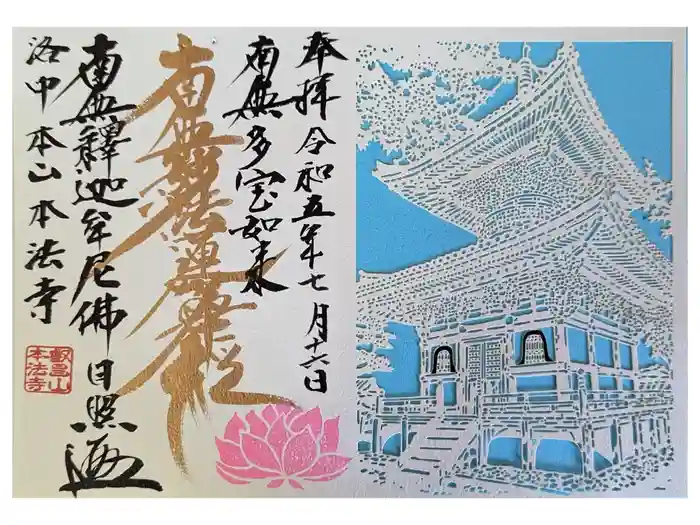 奉拝 令和五年七月十六日
南無多宝如来
南無妙法蓮華経
南無釋迦牟尼佛 日照
洛中 本山 本法寺
叡昌山
本法寺